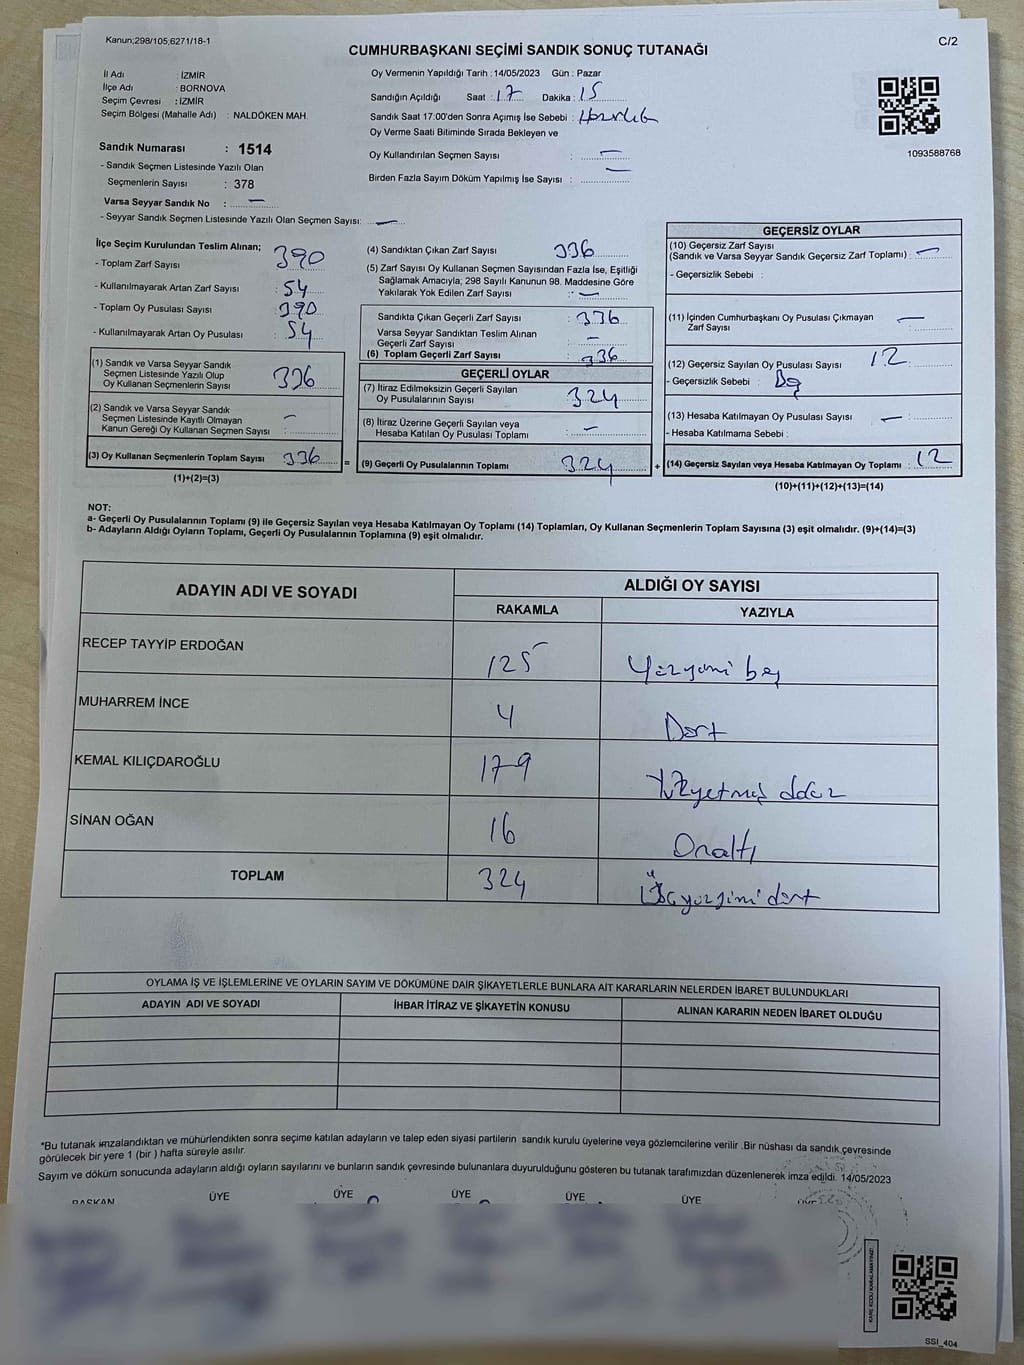 Kanun;298/105;6271/18-1
C/2
CUMHURBAŞKANI SEÇİMİ SANDIK SONUÇ TUTANAĞI
İl Adı : İZMİR
İlçe Adı : BORNOVA
Seçim Çevresi : İZMİR
Seçim Bölgesi (Mahalle Adı) : NALDÖKEN MAH.
Oy Vermenin Yapıldığı Tarih :14/05/2023 Gün : Pazar
Sandığın Açıldığı Saat : 17 Dakika : 15
Sandık Saat 17:00'den Sonra Açımış İse Sebebi : Hazırlık
Oy Verme Saati Bitiminde Sırada Bekleyen ve
Oy Kullandırılan Seçmen Sayısı : —
Birden Fazla Sayım Döküm Yapılmış İse Sayısı : —
1093588768
Sandık Numarası : 1514
- Sandık Seçmen Listesinde Yazılı Olan
Seçmenlerin Sayısı : 378
Varsa Seyyar Sandık No : —
- Seyyar Sandık Seçmen Listesinde Yazılı Olan Seçmen Sayısı: —
İlçe Seçim Kurulundan Teslim Alınan;
- Toplam Zarf Sayısı : 390
- Kullanılmayarak Artan Zarf Sayısı : 54
- Toplam Oy Pusulası Sayısı : 390
- Kullanılmayarak Artan Oy Pusulası : 54
(1) Sandık ve Varsa Seyyar Sandık
Seçmen Listesinde Yazılı Olup
Oy Kullanan Seçmenlerin Sayısı : 336
(2) Sandık ve Varsa Seyyar Sandık
Seçmen Listesinde Kayıtlı Olmayan
Kanun Gereği Oy Kullanan Seçmen Sayısı : —
(3) Oy Kullanan Seçmenlerin Toplam Sayısı : 336
(1)+(2)=(3)
(4) Sandıktan Çıkan Zarf Sayısı : 336
(5) Zarf Sayısı Oy Kullanan Seçmen Sayısından Fazla İse, Eşitliği
Sağlamak Amacıyla, 298 Sayılı Kanunun 98. Maddesine Göre
Yakılarak Yok Edilen Zarf Sayısı : —
Sandıkta Çıkan Geçerli Zarf Sayısı : 336
Varsa Seyyar Sandıktan Teslim Alınan
Geçerli Zarf Sayısı : —
(6) Toplam Geçerli Zarf Sayısı : 336
GEÇERLİ OYLAR
(7) İtiraz Edilmeksizin Geçerli Sayılan
Oy Pusulalarının Sayısı : 324
(8) İtiraz Üzerine Geçerli Sayılan veya
Hesaba Katılan Oy Pusulası Toplamı : —
= (9) Geçerli Oy Pusulalarının Toplamı : 324
GEÇERSİZ OYLAR
(10) Geçersiz Zarf Sayısı
(Sandık ve Varsa Seyyar Sandık Geçersiz Zarf Toplamı) : —
- Geçersizlik Sebebi :
(11) İçinden Cumhurbaşkanı Oy Pusulası Çıkmayan
Zarf Sayısı : —
(12) Geçersiz Sayılan Oy Pusulası Sayısı : 12
- Geçersizlik Sebebi :
(13) Hesaba Katılmayan Oy Pusulası Sayısı : —
- Hesaba Katılmama Sebebi :
+ (14) Geçersiz Sayılan veya Hesaba Katılmayan Oy Toplamı : 12
(10)+(11)+(12)+(13)=(14)
NOT:
a- Geçerli Oy Pusulalarının Toplamı (9) ile Geçersiz Sayılan veya Hesaba Katılmayan Oy Toplamı (14) Toplamları, Oy Kullanan Seçmenlerin Toplam Sayısına (3) eşit olmalıdır. (9)+(14)=(3)
b- Adayların Aldığı Oyların Toplamı, Geçerli Oy Pusulalarının Toplamına (9) eşit olmalıdır.
ADAYIN ADI VE SOYADI
ALDIĞI OY SAYISI
RAKAMLA YAZIYLA
RECEP TAYYİP ERDOĞAN 125 Yüzyirmi beş
MUHARREM İNCE 4 Dört
KEMAL KILIÇDAROĞLU 179 Yüzyetmiş dokuz
SİNAN OĞAN 16 Onaltı
TOPLAM 324 Üçyüzyirmi dört
OYLAMA İŞ VE İŞLEMLERİNE VE OYLARIN SAYIM VE DÖKÜMÜNE DAİR ŞİKAYETLERLE BUNLARA AİT KARARLARIN NELERDEN İBARET BULUNDUKLARI
ADAYIN ADI VE SOYADI İHBAR İTİRAZ VE ŞİKAYETİN KONUSU ALINAN KARARIN NEDEN İBARET OLDUĞU
*Bu tutanak imzalandıktan ve mühürlendikten sonra seçime katılan adayların ve talep eden siyasi partilerin sandık kurulu üyelerine veya gözlemcilerine verilir .Bir nüshası da sandık çevresinde
görülecek bir yere 1 (bir ) hafta süreyle asılır.
Sayım ve döküm sonucunda adayların aldığı oyların sayılarını ve bunların sandık çevresinde bulunanlara duyurulduğunu gösteren bu tutanak tarafımızdan düzenlenerek imza edildi. 14/05/2023
BAŞKAN ÜYE ÜYE ÜYE ÜYE ÜYE ÜYE
KARE KODU KARALAMAYINIZ!
SSI_404